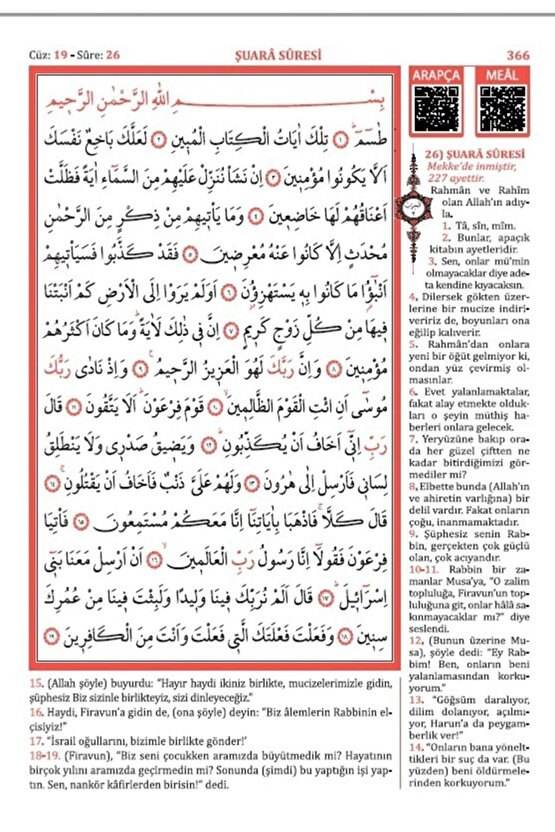 Cüz: 19 - Sûre: 26
ŞUARÂ SÛRESİ
366
بِسْمِ اللهِ الرَّحْمٰنِ الرَّحِيمِ
طٰسٓمٓ ﴿١﴾ تِلْكَ اٰيَاتُ الْكِتَابِ الْمُبِينِ ﴿٢﴾ لَعَلَّكَ بَاخِعٌ نَفْسَكَ
اَلَّا يَكُونُوا مُؤْمِنِينَ ﴿٣﴾ اِنْ نَشَأْ نُنَزِّلْ عَلَيْهِمْ مِنَ السَّمَٓاءِ اٰيَةً فَظَلَّتْ
اَعْنَاقُهُمْ لَهَا خَاضِعِينَ ﴿٤﴾ وَمَا يَأْتِيهِمْ مِنْ ذِكْرٍ مِنَ الرَّحْمٰنِ
مُحْدَثٍ اِلَّا كَانُوا عَنْهُ مُعْرِضِينَ ﴿٥﴾ فَقَدْ كَذَّبُوا فَسَيَأْتِيهِمْ
اَنْبٰٓؤُا مَا كَانُوا بِهِ يَسْتَهْزِؤُنَ ﴿٦﴾ اَوَلَمْ يَرَوْا اِلَى الْاَرْضِ كَمْ اَنْبَتْنَا
فِيهَا مِنْ كُلِّ زَوْجٍ كَرِيمٍ ﴿٧﴾ اِنَّ فِي ذٰلِكَ لَاٰيَةً وَمَا كَانَ اَكْثَرُهُمْ
مُؤْمِنِينَ ﴿٨﴾ وَاِنَّ رَبَّكَ لَهُوَ الْعَزِيزُ الرَّحِيمُ ﴿٩﴾ وَاِذْ نَادٰى رَبُّكَ
مُوسٰٓى اَنِ ائْتِ الْقَوْمَ الظَّالِمِينَ ﴿١٠﴾ قَوْمَ فِرْعَوْنَ اَلَا يَتَّقُونَ ﴿١١﴾ قَالَ
رَبِّ اِنِّٓي اَخَافُ اَنْ يُكَذِّبُونِ ﴿١٢﴾ وَيَضِيقُ صَدْرِي وَلَا يَنْطَلِقُ
لِسَانِي فَاَرْسِلْ اِلٰى هٰرُونَ ﴿١٣﴾ وَلَهُمْ عَلَيَّ ذَنْبٌ فَاَخَافُ اَنْ يَقْتُلُونِ ﴿١٤﴾
قَالَ كَلَّا فَاذْهَبَا بِاٰيَاتِنَٓا اِنَّا مَعَكُمْ مُسْتَمِعُونَ ﴿١٥﴾ فَأْتِيَا
فِرْعَوْنَ فَقُولَٓا اِنَّا رَسُولُ رَبِّ الْعَالَمِينَ ﴿١٦﴾ اَنْ اَرْسِلْ مَعَنَا بَنِٓي
اِسْرَٓائِيلَ ﴿١٧﴾ قَالَ اَلَمْ نُرَبِّكَ فِينَا وَلِيدًا وَلَبِثْتَ فِينَا مِنْ عُمُرِكَ
سِنِينَ ﴿١٨﴾ وَفَعَلْتَ فَعْلَتَكَ الَّتِي فَعَلْتَ وَاَنْتَ مِنَ الْكَافِرِينَ ﴿١٩﴾
ARAPÇA
MEÂL
26) ŞUARÂ SÛRESİ
Mekke'de inmiştir,
227 ayettir.
Rahmân ve Rahîm
olan Allah'ın adıy-
la.
1. Tâ, sîn, mîm.
2. Bunlar, apaçık
kitabın ayetleridir.
3. Sen, onlar mü'min
olmayacaklar diye ade-
ta kendine kıyacaksın.
4. Dilersek gökten üzer-
lerine bir mucize indiri-
veririz de, boyunları ona
eğilip kalıverir.
5. Rahmân'dan onlara
yeni bir öğüt gelmiyor ki,
ondan yüz çevirmiş ol-
masınlar.
6. Evet yalanlamaktalar,
fakat alay etmekte olduk-
ları o şeyin müthiş ha-
berleri onlara gelecek.
7. Yeryüzüne bakıp ora-
da her güzel çiftten ne
kadar bitirdiğimizi gör-
mediler mi?
8. Elbette bunda (Allah'ın
ve ahiretin varlığına) bir
delil vardır. Fakat onların
çoğu, inanmamaktadır.
9. Şüphesiz senin Rab-
bin, gerçekten çok güçlü
olan, çok acıyandır.
10-11. Rabbin bir za-
manlar Musa'ya, "O zalim
topluluğa, Firavun'un top-
luluğuna git, onlar hâlâ sa-
kınmayacaklar mı?" diye
seslendi.
12. (Bunun üzerine Mu-
sa), şöyle dedi: "Ey Rab-
bim! Ben, onların beni
yalanlamasından korku-
yorum."
13. "Göğsüm daralıyor,
dilim dolanıyor, açılmı-
yor, Harun'a da peygam-
berlik ver!"
14. "Onların bana yönelt-
tikleri bir suç da var. (Bu
yüzden) beni öldürmele-
rinden korkuyorum."
15. (Allah şöyle) buyurdu: "Hayır haydi ikiniz birlikte, mucizelerimizle gidin,
şüphesiz Biz sizinle birlikteyiz, sizi dinleyeceğiz."
16. Haydi, Firavun'a gidin de, (ona şöyle) deyin: "Biz âlemlerin Rabbinin el-
çisiyiz!"
17. "İsrail oğullarını, bizimle birlikte gönder!"
18-19. (Firavun), "Biz seni çocukken aramızda büyütmedik mi? Hayatının
birçok yılını aramızda geçirmedin mi? Sonunda (şimdi) bu yaptığın işi yap-
tın. Sen, nankör kâfirlerden birisin!" dedi.